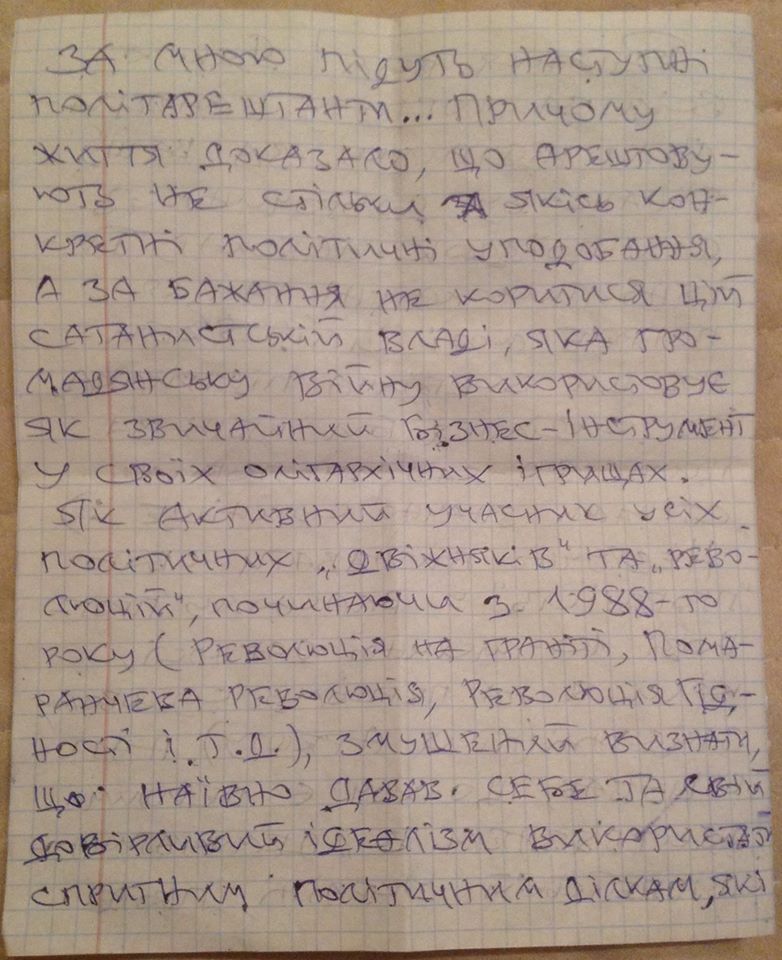 ЗА МНОЮ ПІДУТЬ НАСТУПНІ
ПОЛІТАРЕШТАНТИ... ПРИЧОМУ
ЖИТТЯ ДОКАЗАЛО, ЩО АРЕШТОВУ-
ЮТЬ НЕ СТІЛЬКИ ЗА ЯКІСЬ КОН-
КРЕТНІ ПОЛІТИЧНІ УПОДОБАННЯ,
А ЗА БАЖАННЯ НЕ КОРИТИСЯ ЦІЙ
САТАНИСТСЬКІЙ ВЛАДІ, ЯКА ГРО-
МАДЯНСЬКУ ВІЙНУ ВИКОРИСТОВУЄ
ЯК ЗВИЧАЙНИЙ БІЗНЕС-ІНСТРУМЕНТ
У СВОЇХ ОЛІГАРХІЧНИХ ІГРИЩАХ.
ЯК АКТИВНИЙ УЧАСНИК УСІХ
ПОЛІТИЧНИХ „ДВІЖНЯКІВ" ТА „РЕВО-
ЛЮЦІЙ", ПОЧИНАЮЧИ З 1988-ГО
РОКУ (РЕВОЛЮЦІЯ НА ГРАНІТІ, ПОМА-
РАНЧЕВА РЕВОЛЮЦІЯ, РЕВОЛЮЦІЯ ГІД-
НОСТІ І.Т.Д.), ЗМУШЕНИЙ ВИЗНАТИ,
ЩО НАЇВНО ДАВАВ СЕБЕ ТА СВІЙ
ДОВІРЛИВИЙ ІДЕАЛІЗМ ВИКОРИСТАТИ
СПРИТНИМ ПОЛІТИЧНИМ ДІЛКАМ, ЯКІ